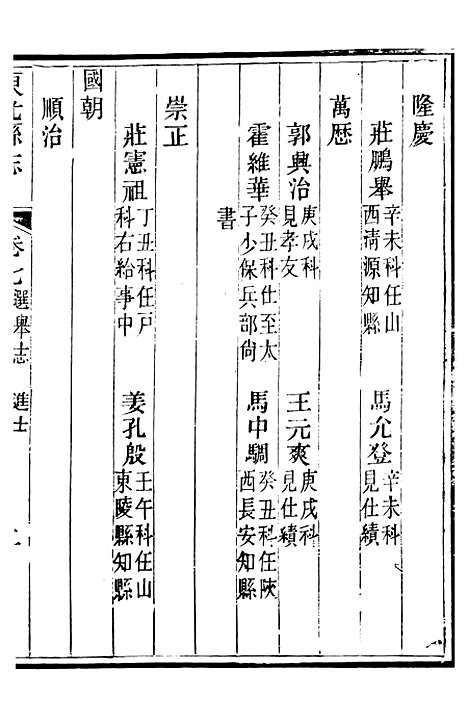 隆慶
莊鵬舉 辛未科任山西清源知縣 馬允登 辛未科見仕績
萬厯
郭興治 庚戌科見孝友 王元爽 庚戌科見仕績
霍維華 癸丑科仕至太子少保兵部尙書 馬中騆 癸丑科任陝西長安知縣
崇正
莊憲祖 丁丑科任戸科右給事中 姜孔殷 壬午科任山東陵縣知縣
國朝
順治
東光縣志 卷七 選舉志 進士